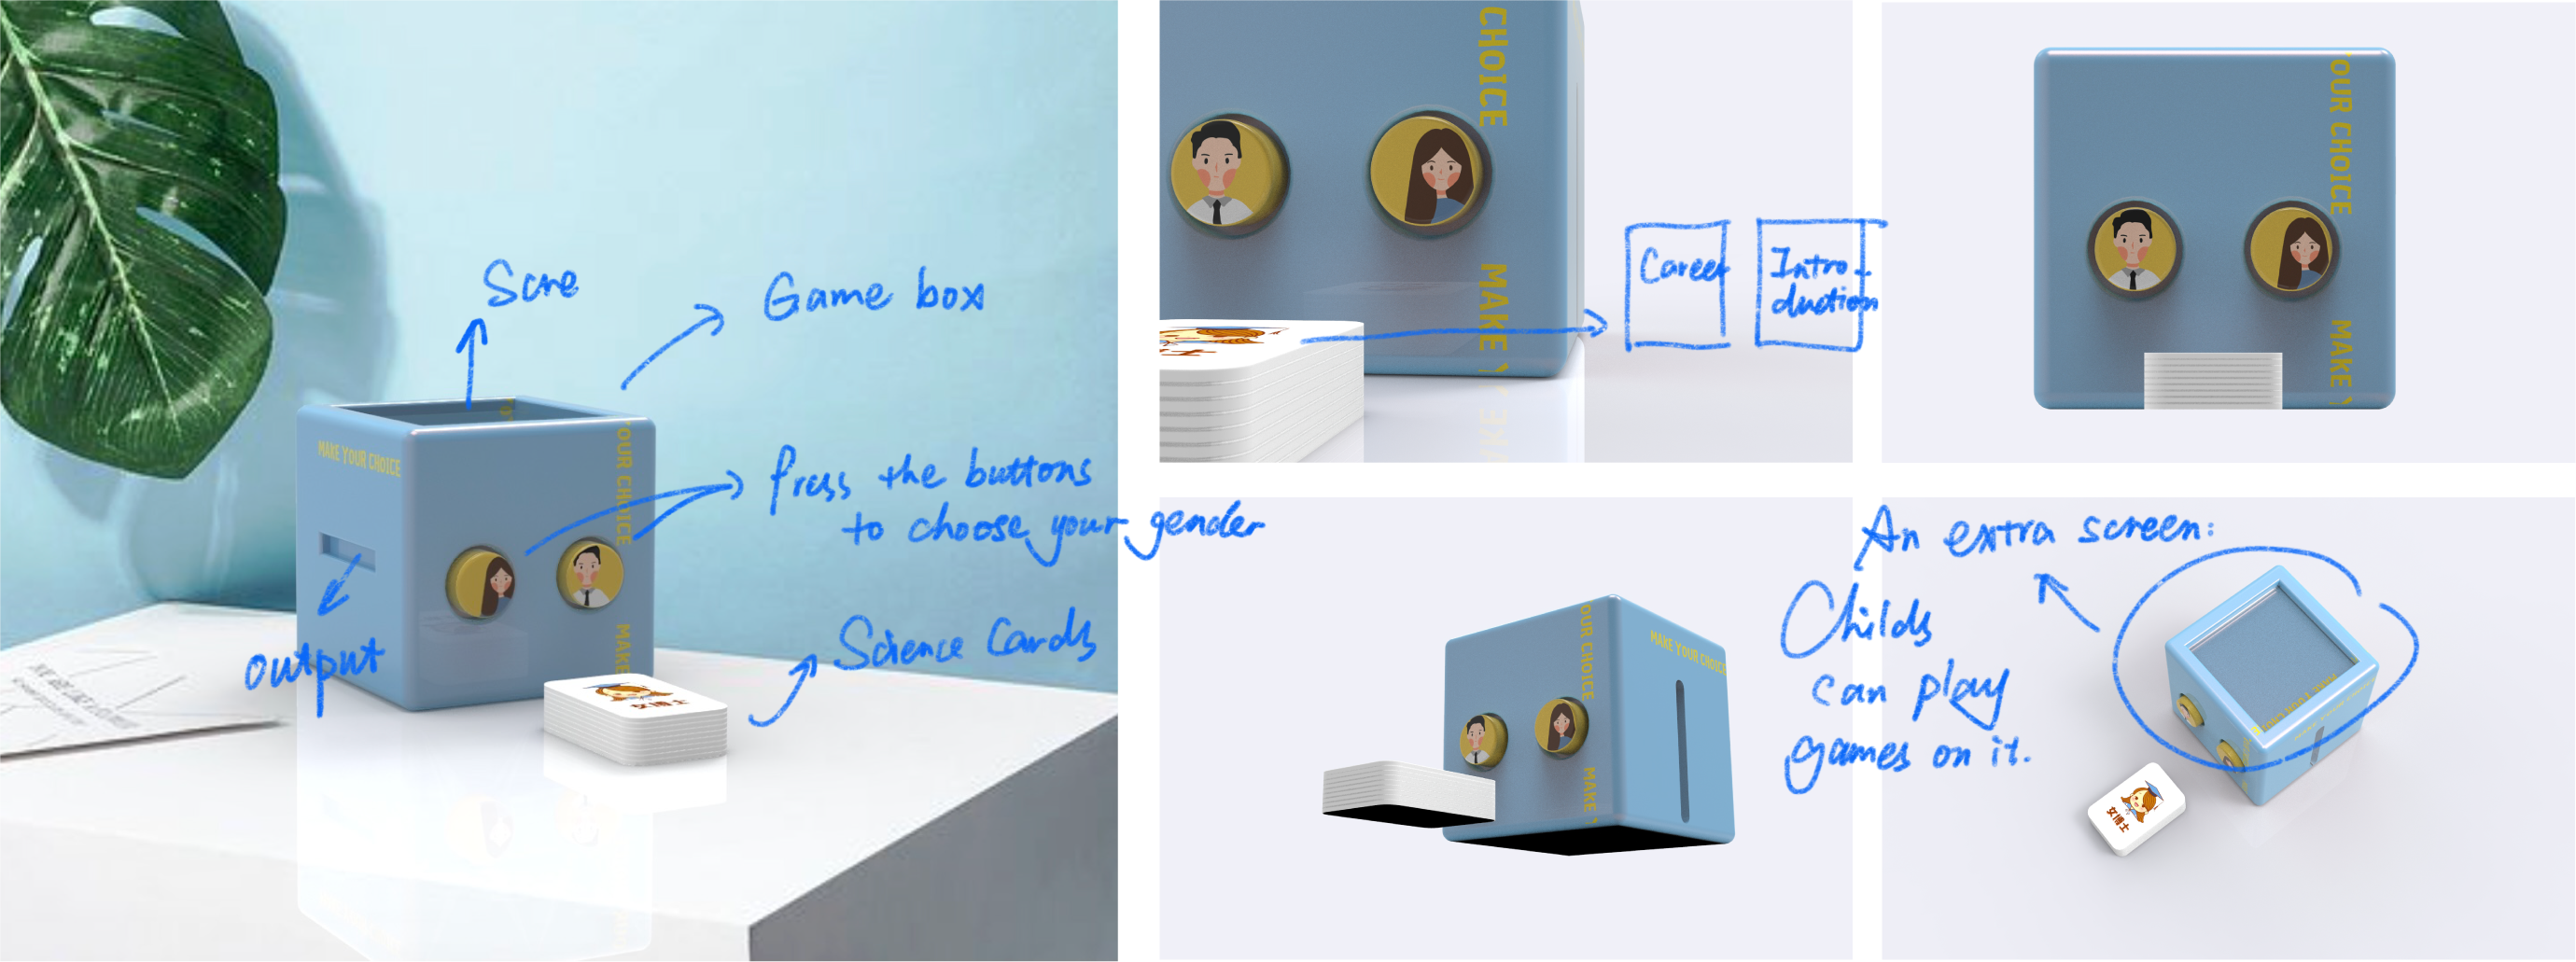 Scre
Game box
MAKE YOUR CHOICE
OUR CHOICE
MAKE
Press the buttons
to choose your gender
output
Science Cards
女博士
CHOICE
MAKE Y
Career
Intro-
duction
OUR CHOICE
MAKE Y
OUR CHOICE
MAKE
MAKE YOUR CHOICE
An extra screen:
Childs
can play
games on it.
女博士